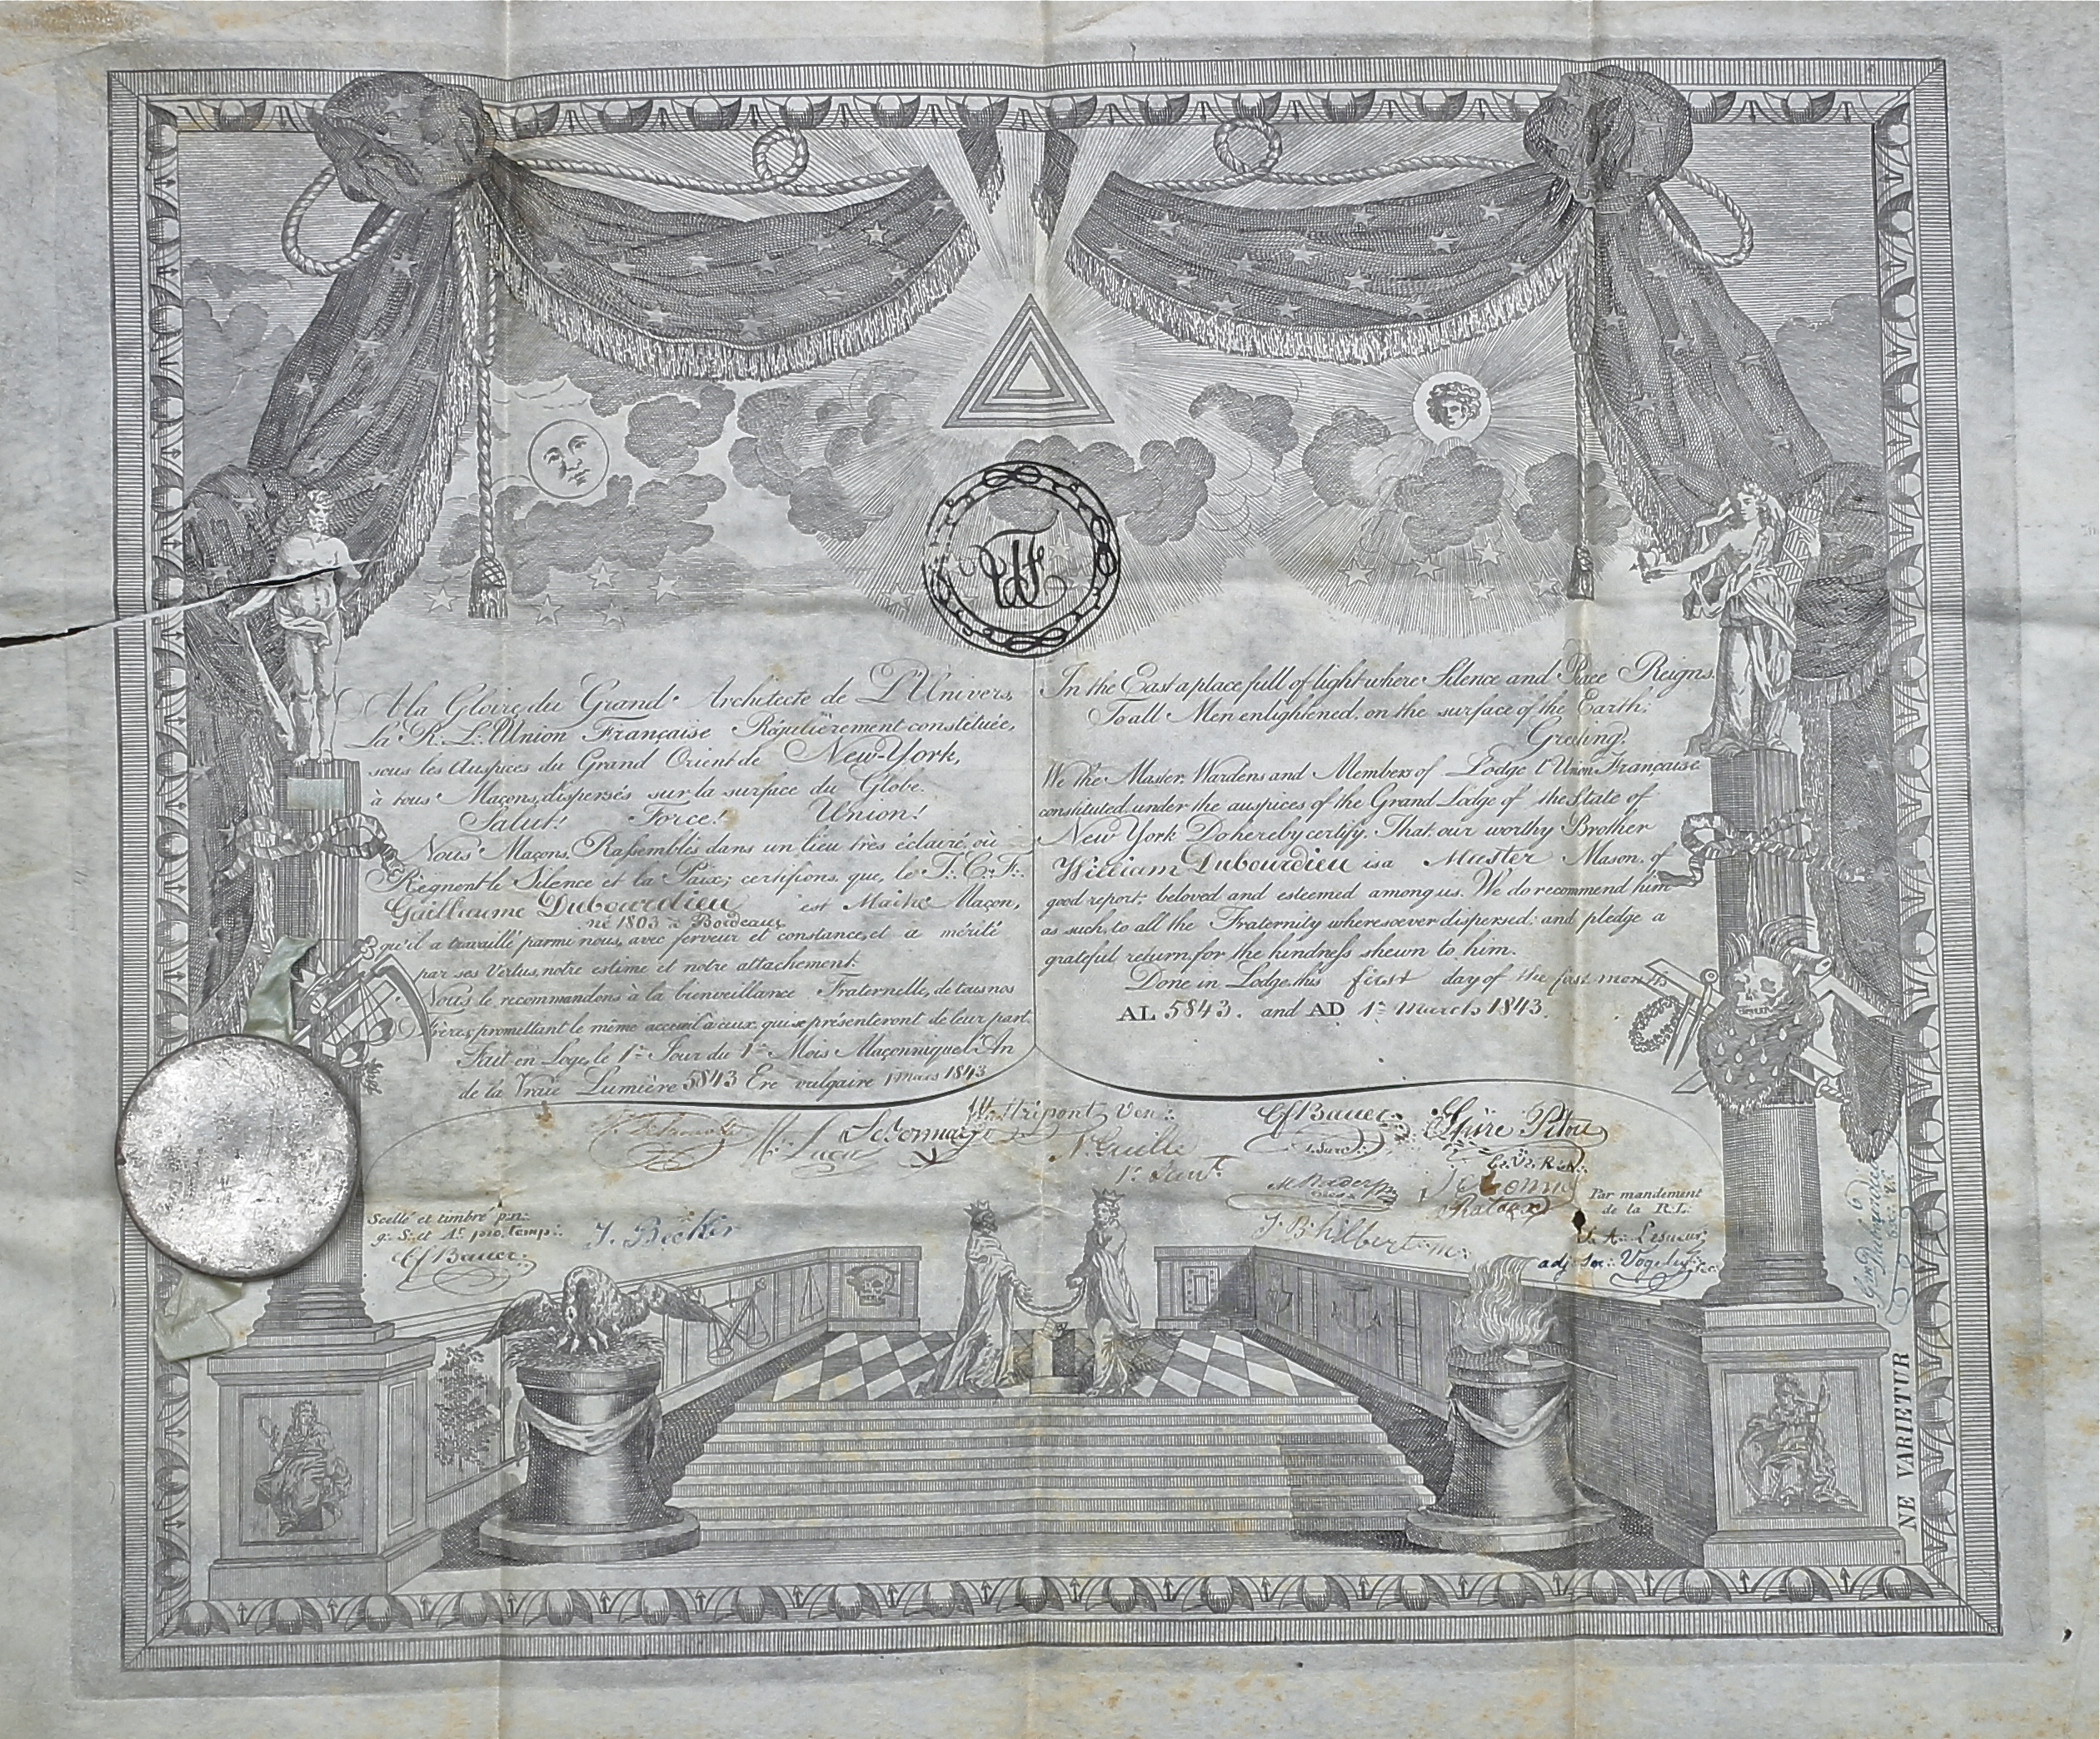 A la Gloire du Grand Architecte de L'Univers,
La R.·. L.·. l'Union Française Régulièrement constituée,
sous les Auspices du Grand Orient de New-York,
à tous Maçons, dispersés sur la surface du Globe.
Salut! Force! Union!
Nous Maçons, Rassemblés dans un lieu très éclairé, où
Règnent le Silence et la Paix; certifions, que, le T.·. C.·. F.·.
Guillaume Dubourdieu est Maître Maçon,
né 1803 à Bordeaux
qu'il a travaillé parmi nous, avec ferveur et constance, et a mérité
par ses Vertus, notre estime et notre attachement.
Nous le recommandons à la bienveillance Fraternelle, de tous nos
Frères, promettant le même accueil à ceux, qui se présenteront de leur part.
Fait en Loge, le 1er Jour du 1er Mois Maçonnique L'An
de la Vraie Lumière 5843 Ere vulgaire 1 Mars 1843
In the East a place full of light where Silence and Peace Reigns.
To all Men enlightened, on the surface of the Earth;
Greeting.
We the Master, Wardens and Members of Lodge l'Union Française
constituted under the auspices of the Grand Lodge of the State of
New York Do hereby certify, That our worthy Brother
William Dubourdieu is a Master Mason, of
good report, beloved and esteemed among us. We do recommend him
as such, to all the Fraternity wheresoever dispersed: and pledge a
grateful return, for the kindness shewn to him.
Done in Lodge, this first day of the first month
AL 5843. and AD 1st March 1843.
Ven.·.
Cf Bauer
Lucu
N. Guille
1er Surv.
Scellé et timbré p.
g. S. et A. pro. temp.·.
Cf Bauer.·.
J. Becker
J. B. hilbert
Par mandement
de la R. L.
Lesueur
adj. Sec.·. Vogel
Dubourdieu
NE VARIETUR